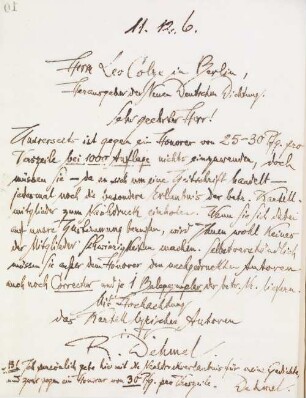 11. 12. 6.
Herrn Leo Colze in Berlin,
Herausgeber der Neuen Deutschen Dichtung.
Sehr geehrter Herr!
Unserseits ist gegen ein Honorar von 25-30 Pfg. pro
Verszeile bei 1000 Auflage nichts einzuwenden, doch
müssen Sie – da es sich um eine Zeitschrift handelt –
jedesmal noch die besondere Erlaubnis der betr. Kartell-
mitglieder zum Nachdruck einholen. Wenn Sie sich dabei
auf unsre Zustimmung berufen, wird Ihnen wohl keiner
der Mitglieder Schwierigkeiten machen. Selbstverständlich
müssen Sie außer dem Honorar den nachgedruckten Autoren
auch noch Correctur und je 1 Belegexemplar der betr. N. liefern.
Mit Hochachtung
das Kartell lyrischer Autoren
R. Dehmel.
Ich persönlich gebe hiermit die Nachdruckerlaubnis für meine Gedichte
und zwar gegen ein Honorar von 30 Pfg. pro Verszeile. Dehmel.